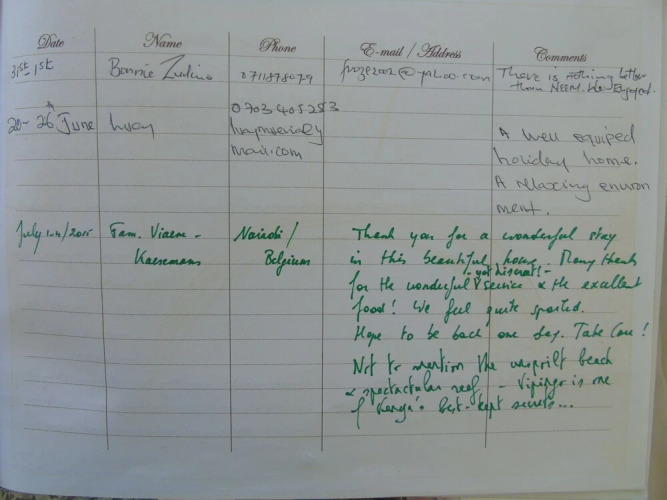 Date Name Phone E-mail / Address Comments
31st 1st Bonnie 0711878079 froze2002@yahoo.com There is nothing better
than NEEM. We Enjoyed.
0703405253
20-26th June Lucy
mail.com
A well equiped
holiday home.
A relaxing environ
ment.
July 1-4/2015 Fam. Viaene - Nairobi / Thank you for a wonderful stay
Kaesemans Belgium in this beautiful house. Many thanks
- yet discreet! -
for the wonderful service & the excellent
food! We feel quite spoiled.
Hope to be back one day. Take Care!
Not to mention the unspoilt beach
& spectacular reef - Vipingo is one
of Kenya's best-kept secrets...